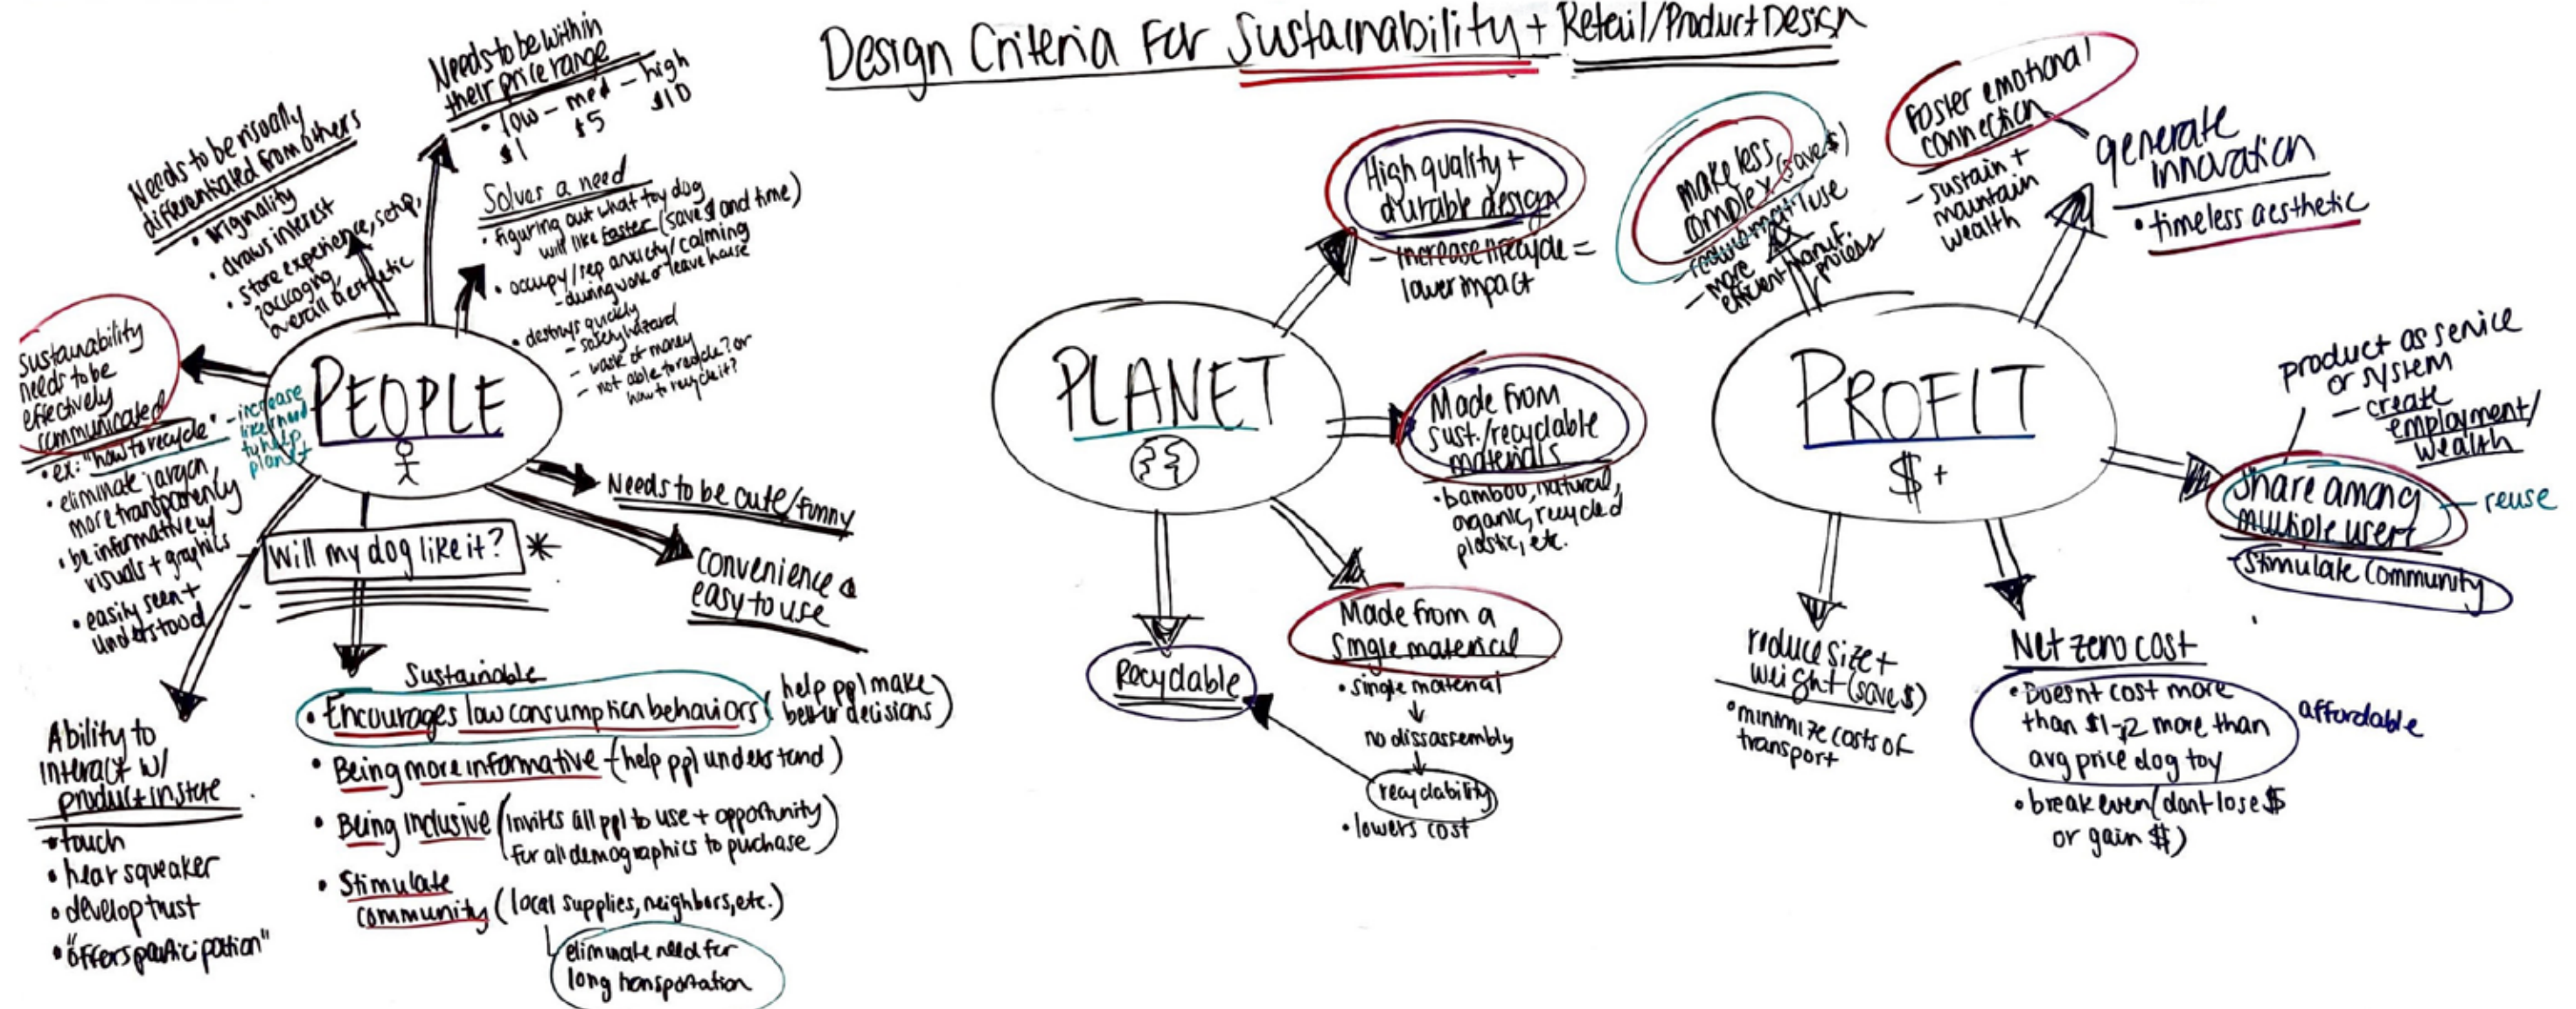 Design Criteria For Sustainability + Retail/Product Design
Needs to be visually
differentiated from others
• originality
• draws interest
• store experience, setup,
packaging,
overall aesthetic
Needs to be within
their price range
• low — med — high
$1 $5 $10
Solves a need
• figuring out what toy dog
will like faster (save $ and time)
• occupy/sep anxiety/calming
- during work or leave house
• destroys quickly
- safety hazard
- waste of money
- not able to recycle? or
how to recycle it?
sustainability
needs to be
effectively
communicated
• ex: "how to recycle"
- increase
likelihood
to help
planet
• eliminate jargon
more transparency
• be informative w/
visuals + graphics
• easily seen +
understood
PEOPLE
Needs to be cute/funny
convenience &
easy to use
Will my dog like it? *
Ability to
interact w/
product instore
• touch
• hear squeaker
• develop trust
• "offers participation"
Sustainable
• Encourages low consumption behaviors (help ppl make
better decisions)
• Being more informative - (help ppl understand)
• Being Inclusive (invites all ppl to use + opportunity
for all demographics to puchase)
• Stimulate
community (local supplies, neighbors, etc.)
eliminate need for
long transportation
PLANET
High quality +
durable design
- increase lifecycle =
lower impact
Made from
sust./recyclable
materials
• bamboo, natural,
organic, recycled
plastic, etc.
Made from a
single material
• single material
↓
no dissassembly
↓
recyclability
• lowers cost
Recyclable
PROFIT
$ +
make less
complex (save $)
- more
efficient manuf.
process
foster emotional
connection
- sustain +
maintain
wealth
generate
innovation
• timeless aesthetic
product as service
or system
- create
employment/
wealth
Share among
multiple users
- reuse
- Stimulate Community
reduce size +
weight (save $)
• minimize costs of
transport
Net zero cost
• Doesnt cost more
than $1-$2 more than
avg price dog toy
affordable
• break even (dont lose $
or gain $)